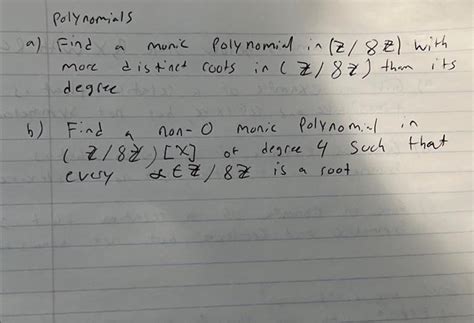 Polynomials
a) Find a monic Polynomial in (Z/8Z) with
more distinct roots in (Z/8Z) than its
degree
b) Find a non-0 monic Polynomial in
(Z/8Z)[X] of degree 4 such that
every α∈Z/8Z is a root